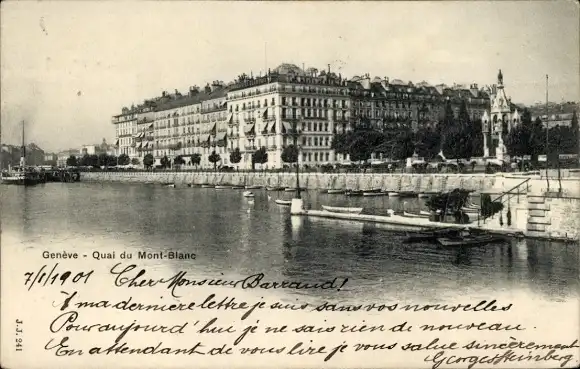 Genève - Quai du Mont-Blanc
7/1/1901 Cher Monsieur Barraud!
A ma dernière lettre je suis sans vos nouvelles
Pour aujourd'hui je ne sais rien de nouveau.
En attendant de vous lire je vous salue sincèrement
Georges Steinberg.
J.J. 241